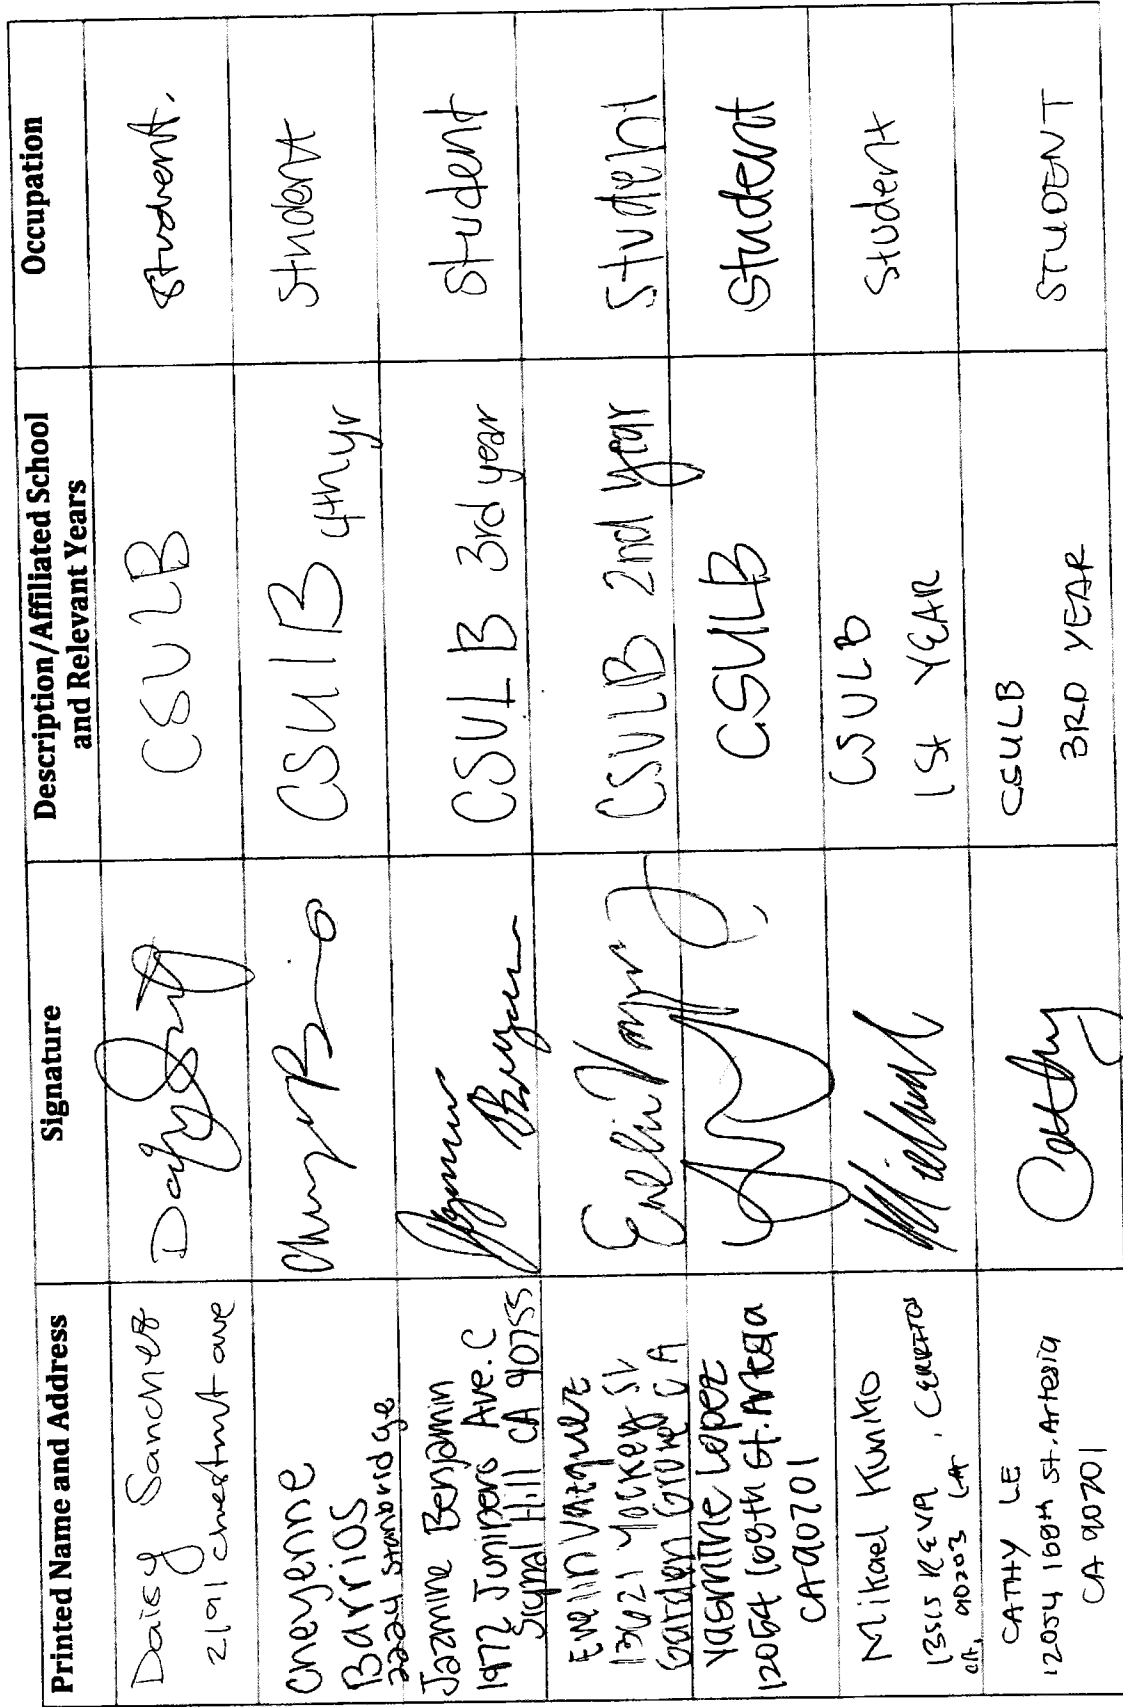 Printed Name and Address
Signature
Description/Affiliated School
and Relevant Years
Occupation
Daisy Sanchez
2191 chestnut ave
CSULB
Student.
Cheyenne
Barrios
2224 Stanbridge
CSULB 4th yr
Student
Jazmine Benjamin
1972 Junipero Ave. C
Signal Hill CA 90755
CSULB 3rd year
Student
Evelin Vazquez
13621 Yockey St
Garden Grove CA
Evelin Vazquez
CSULB 2nd year
Student
Yasmine Lopez
12054 168th St. Artesia
CA 90701
CSULB
Student
Mikael Kuniko
13515 REVA CERRITOS
90203 CA
CSULB
1st YEAR
Student
CATHY LE
12054 168th St. Artesia
CA 90701
Cathy
CSULB
3RD YEAR
STUDENT